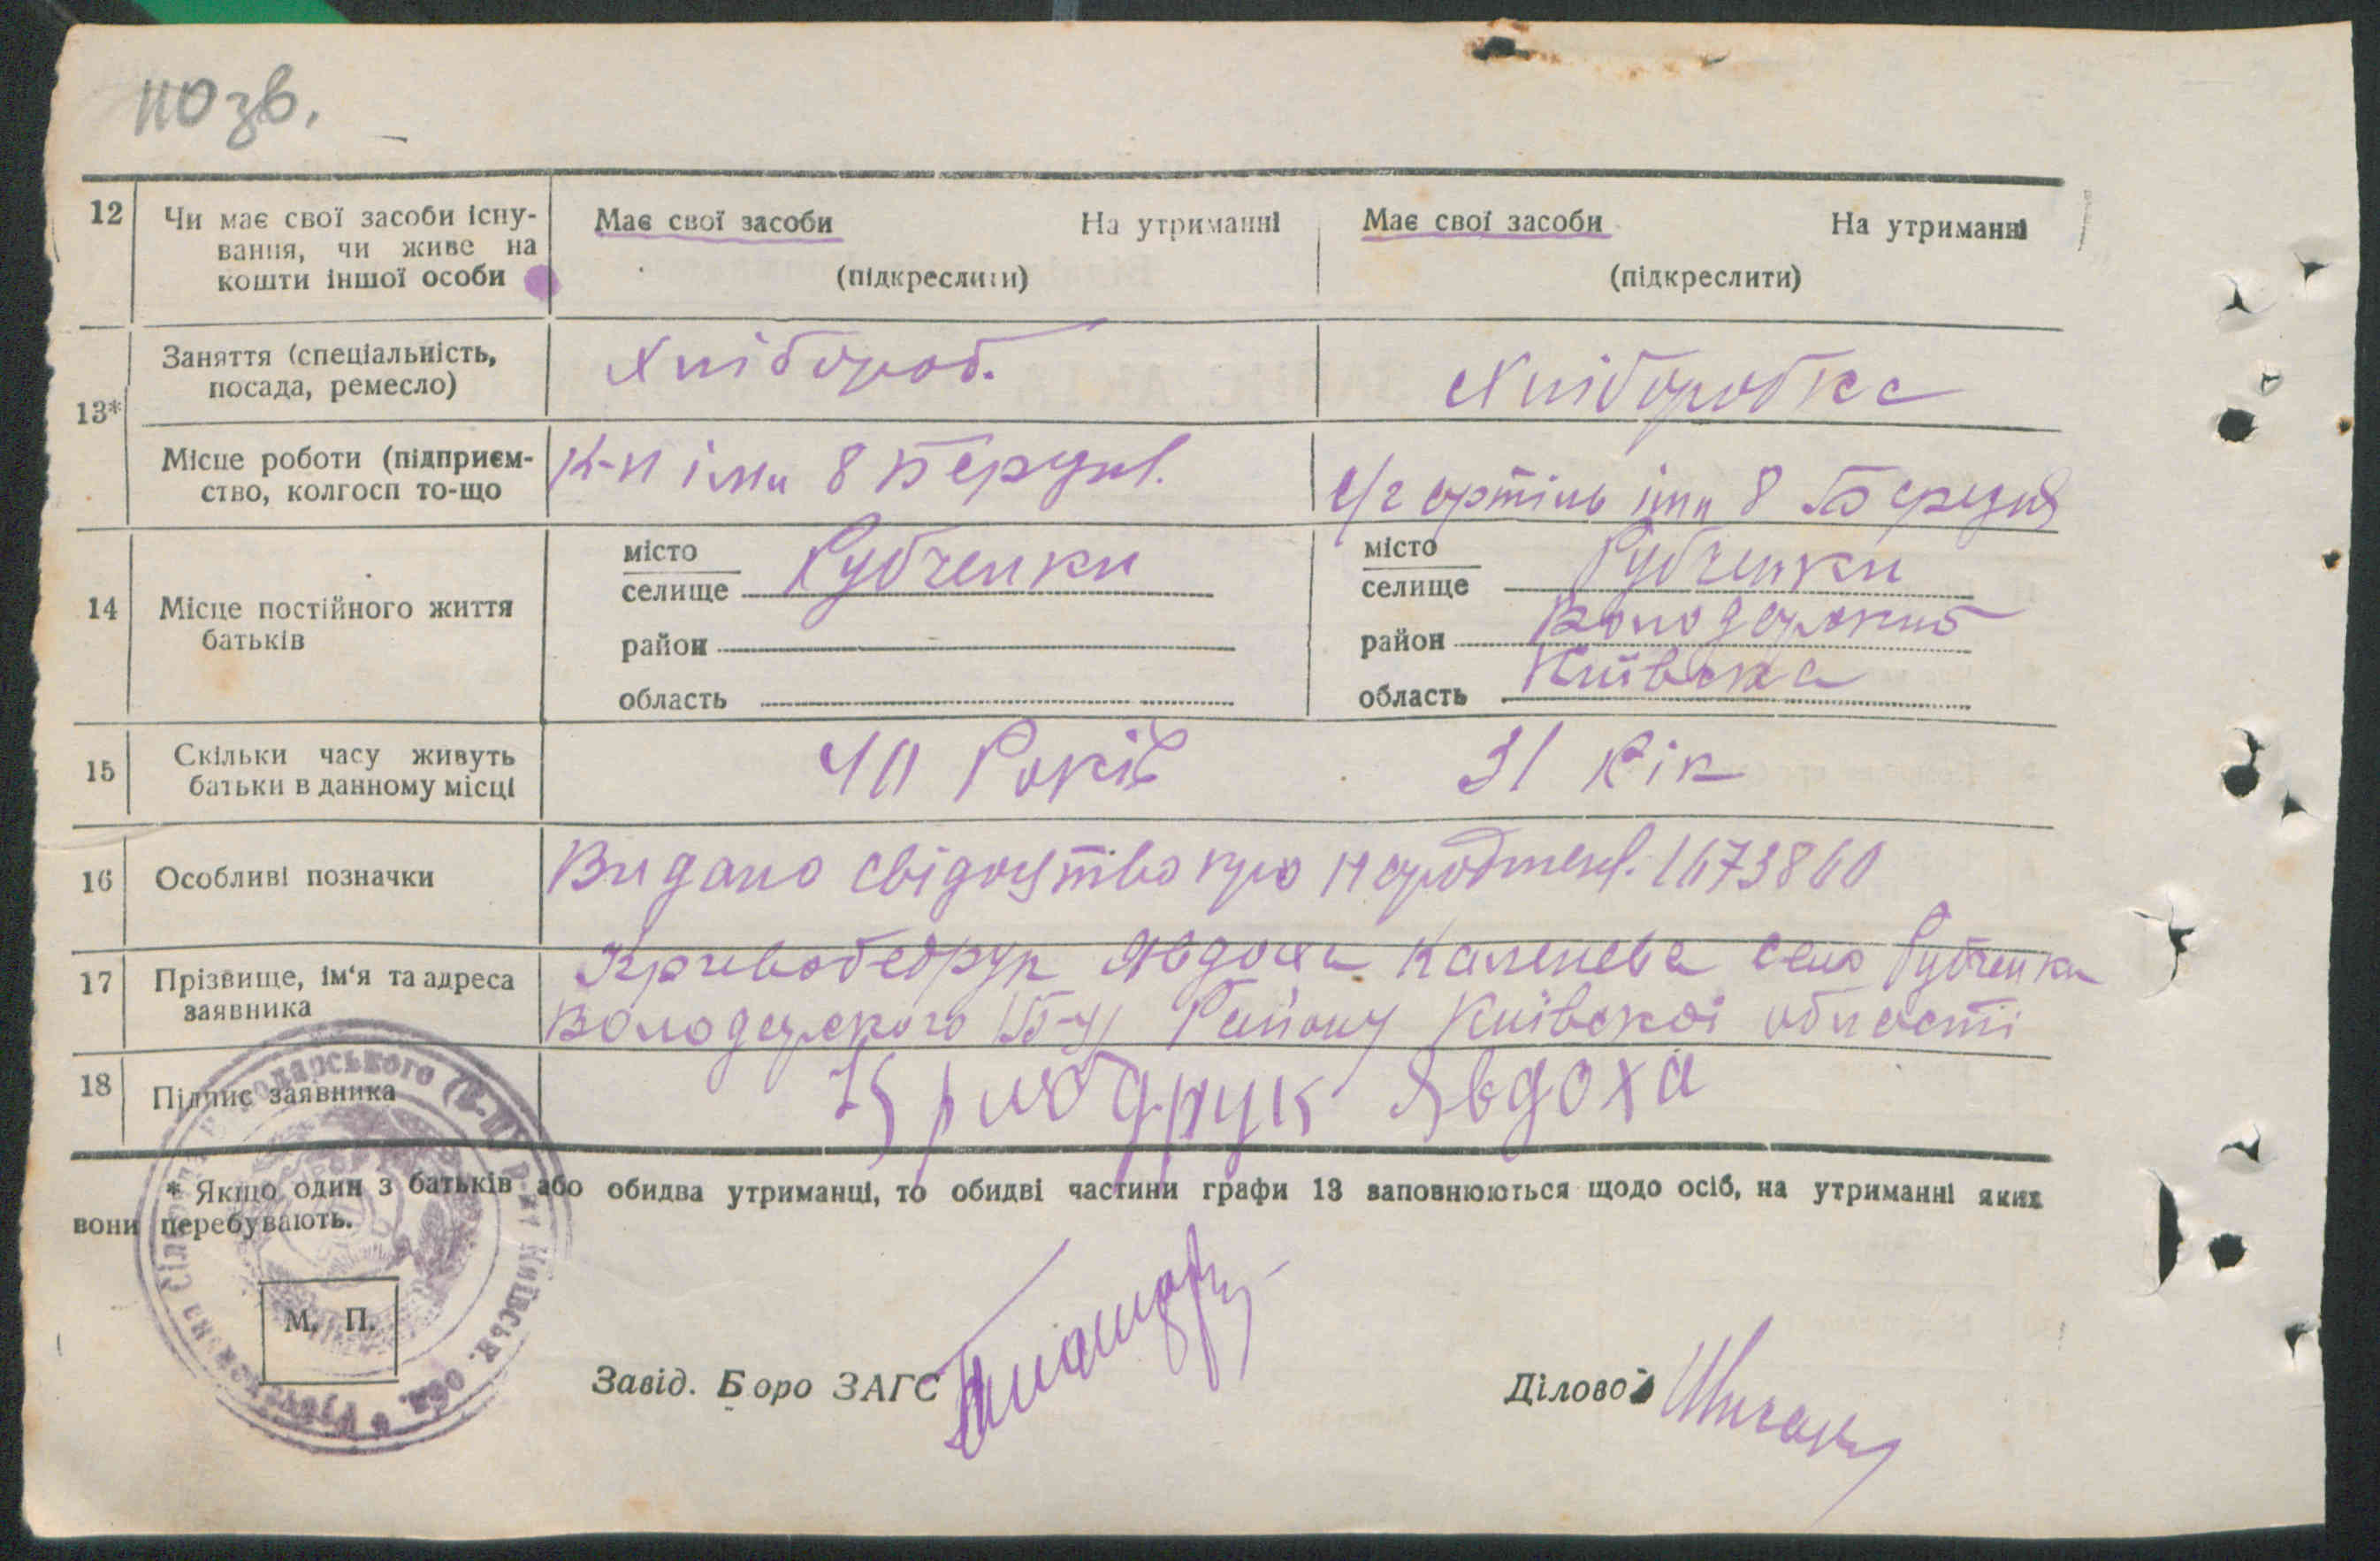 110 зв.
12 Чи має свої засоби існу- Має свої засоби На утриманні Має свої засоби На утриманні
вання, чи живе на
кошти іншої особи (підкреслити) (підкреслити)
13* Заняття (спеціальність, Хлібороб. Хліборобка
посада, ремесло)
Місце роботи (підприєм- К-п імн 8 Березня. с/г артіль імн 8 Березня
ство, колгосп то-що
14 Місце постійного життя місто Рубченки місто Рубченки
батьків селище селище
район район Володарський
область область Київська
15 Скільки часу живуть 40 Років 31 Рік
батьки в данному місці
16 Особливі позначки Видано свідоцтво про народжен. 1673860
17 Прізвище, ім'я та адреса Кривобедрук Явдоха Каленева село Рубченки
заявника Володарского (Б-Ц) Району Київскої області
18 Підпис заявника Явдоха
* Якщо один з батьків або обидва утриманці, то обидві частини графи 13 заповнюються щодо осіб, на утриманні яких
вони перебувають.
М. П.
Завід. Боро ЗАГС Діловод